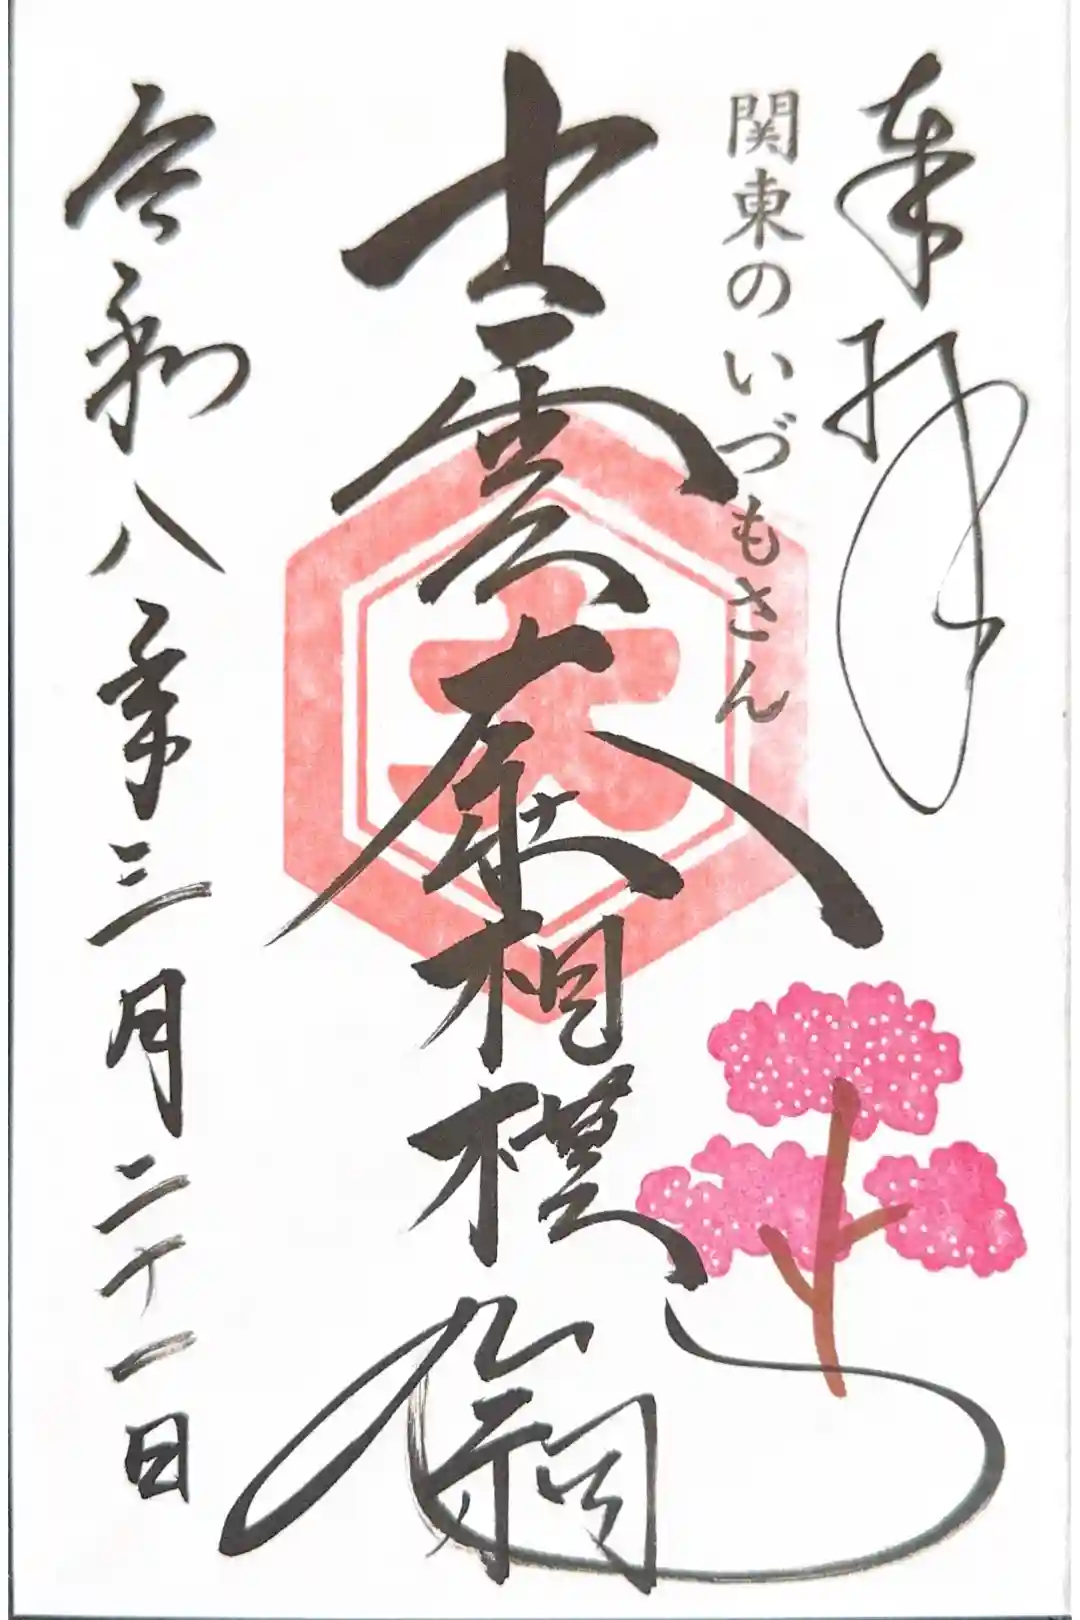 奉拝
関東のいづもさん
出雲大社相模分祠
大
令和八年三月二十一日